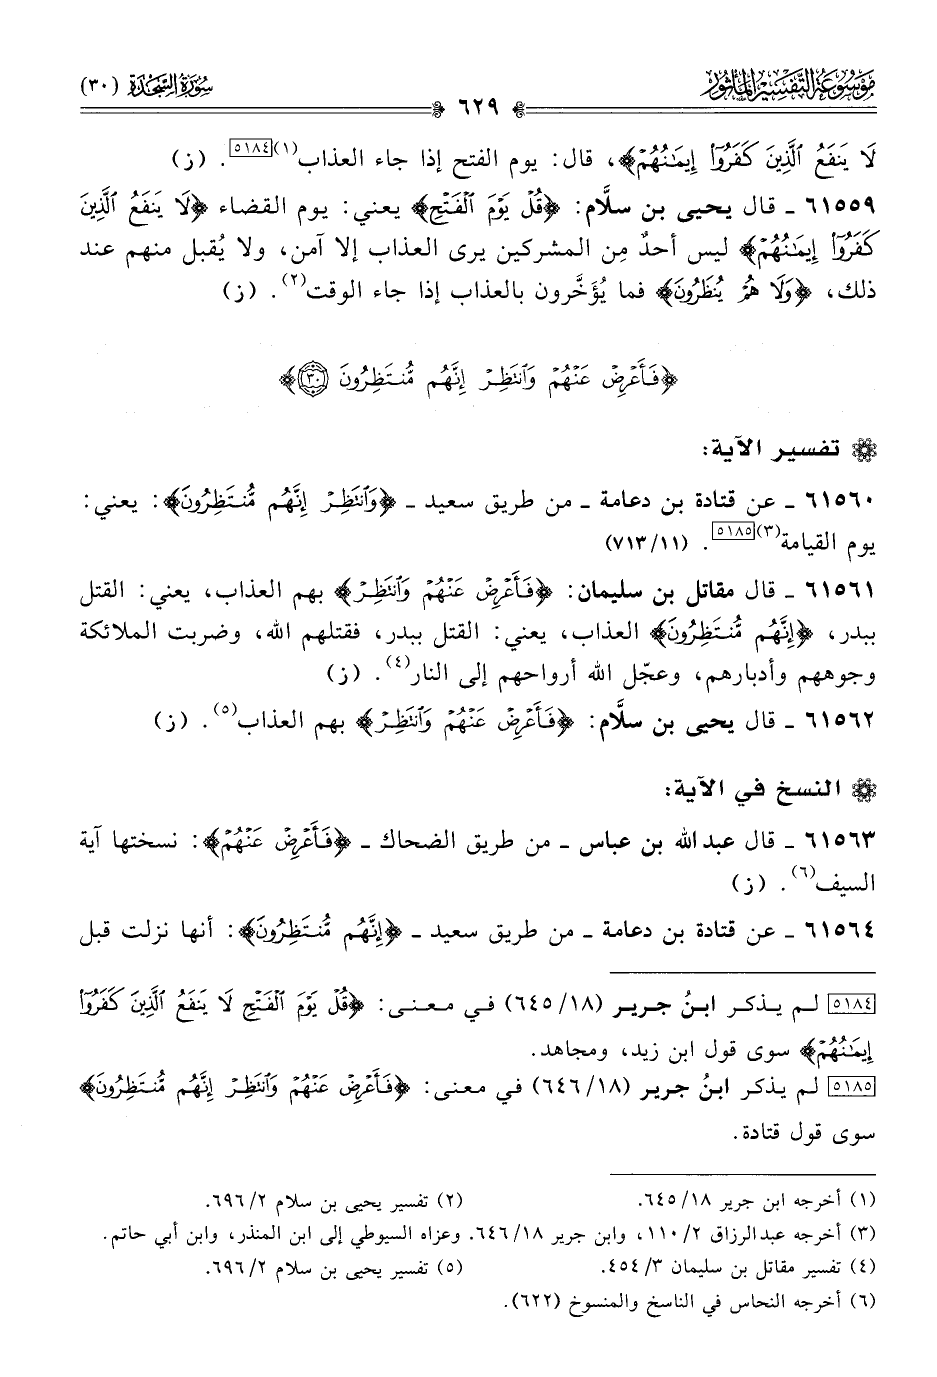 موسوعة التفسير المأثور
٦٢٩
سورة السجدة (٣٠)
لَا يَنفَعُ ٱلَّذِينَ كَفَرُوٓاْ إِيمَٰنُهُمۡ﴾، قال: يوم الفتح إذا جاء العذاب(١)[٥١٨٤]. (ز)
٦١٥٥٩ ـ قال يحيى بن سلَّام: ﴿قُلۡ يَوۡمَ ٱلۡفَتۡحِ﴾ يعني: يوم القضاء ﴿لَا يَنفَعُ ٱلَّذِينَ
كَفَرُوٓاْ إِيمَٰنُهُمۡ﴾ ليس أحدٌ مِن المشركين يرى العذاب إلا آمن، ولا يُقبل منهم عند
ذلك، ﴿وَلَا هُمۡ يُنظَرُونَ﴾ فما يُؤَخَّرون بالعذاب إذا جاء الوقت(٢). (ز)
﴿فَأَعۡرِضۡ عَنۡهُمۡ وَٱنتَظِرۡ إِنَّهُم مُّنتَظِرُونَ ٣٠﴾
تفسير الآية:
٦١٥٦٠ ـ عن قتادة بن دعامة ـ من طريق سعيد ـ ﴿وَٱنتَظِرۡ إِنَّهُم مُّنتَظِرُونَ﴾: يعني:
يوم القيامة(٣)[٥١٨٥]. (٧١٣/١١)
٦١٥٦١ ـ قال مقاتل بن سليمان: ﴿فَأَعۡرِضۡ عَنۡهُمۡ وَٱنتَظِرۡ﴾ بهم العذاب، يعني: القتل
ببدر، ﴿إِنَّهُم مُّنتَظِرُونَ﴾ العذاب، يعني: القتل ببدر، فقتلهم الله، وضربت الملائكة
وجوههم وأدبارهم، وعجّل الله أرواحهم إلى النار(٤). (ز)
٦١٥٦٢ ـ قال يحيى بن سلَّام: ﴿فَأَعۡرِضۡ عَنۡهُمۡ وَٱنتَظِرۡ﴾ بهم العذاب(٥). (ز)
النسخ في الآية:
٦١٥٦٣ ـ قال عبد الله بن عباس ـ من طريق الضحاك ـ ﴿فَأَعۡرِضۡ عَنۡهُمۡ﴾: نسختها آية
السيف(٦). (ز)
٦١٥٦٤ ـ عن قتادة بن دعامة ـ من طريق سعيد ـ ﴿إِنَّهُم مُّنتَظِرُونَ﴾: أنها نزلت قبل
[٥١٨٤] لم يذكر ابنُ جرير (٦٤٥/١٨) في معنى: ﴿قُلۡ يَوۡمَ ٱلۡفَتۡحِ لَا يَنفَعُ ٱلَّذِينَ كَفَرُوٓاْ
إِيمَٰنُهُمۡ﴾ سوى قول ابن زيد، ومجاهد.
[٥١٨٥] لم يذكر ابنُ جرير (٦٤٦/١٨) في معنى: ﴿فَأَعۡرِضۡ عَنۡهُمۡ وَٱنتَظِرۡ إِنَّهُم مُّنتَظِرُونَ﴾
سوى قول قتادة.
(١) أخرجه ابن جرير ٦٤٥/١٨. (٢) تفسير يحيى بن سلام ٦٩٦/٢.
(٣) أخرجه عبدالرزاق ١١٠/٢، وابن جرير ٦٤٦/١٨. وعزاه السيوطي إلى ابن المنذر، وابن أبي حاتم.
(٤) تفسير مقاتل بن سليمان ٤٥٤/٣. (٥) تفسير يحيى بن سلام ٦٩٦/٢.
(٦) أخرجه النحاس في الناسخ والمنسوخ (٦٢٢).